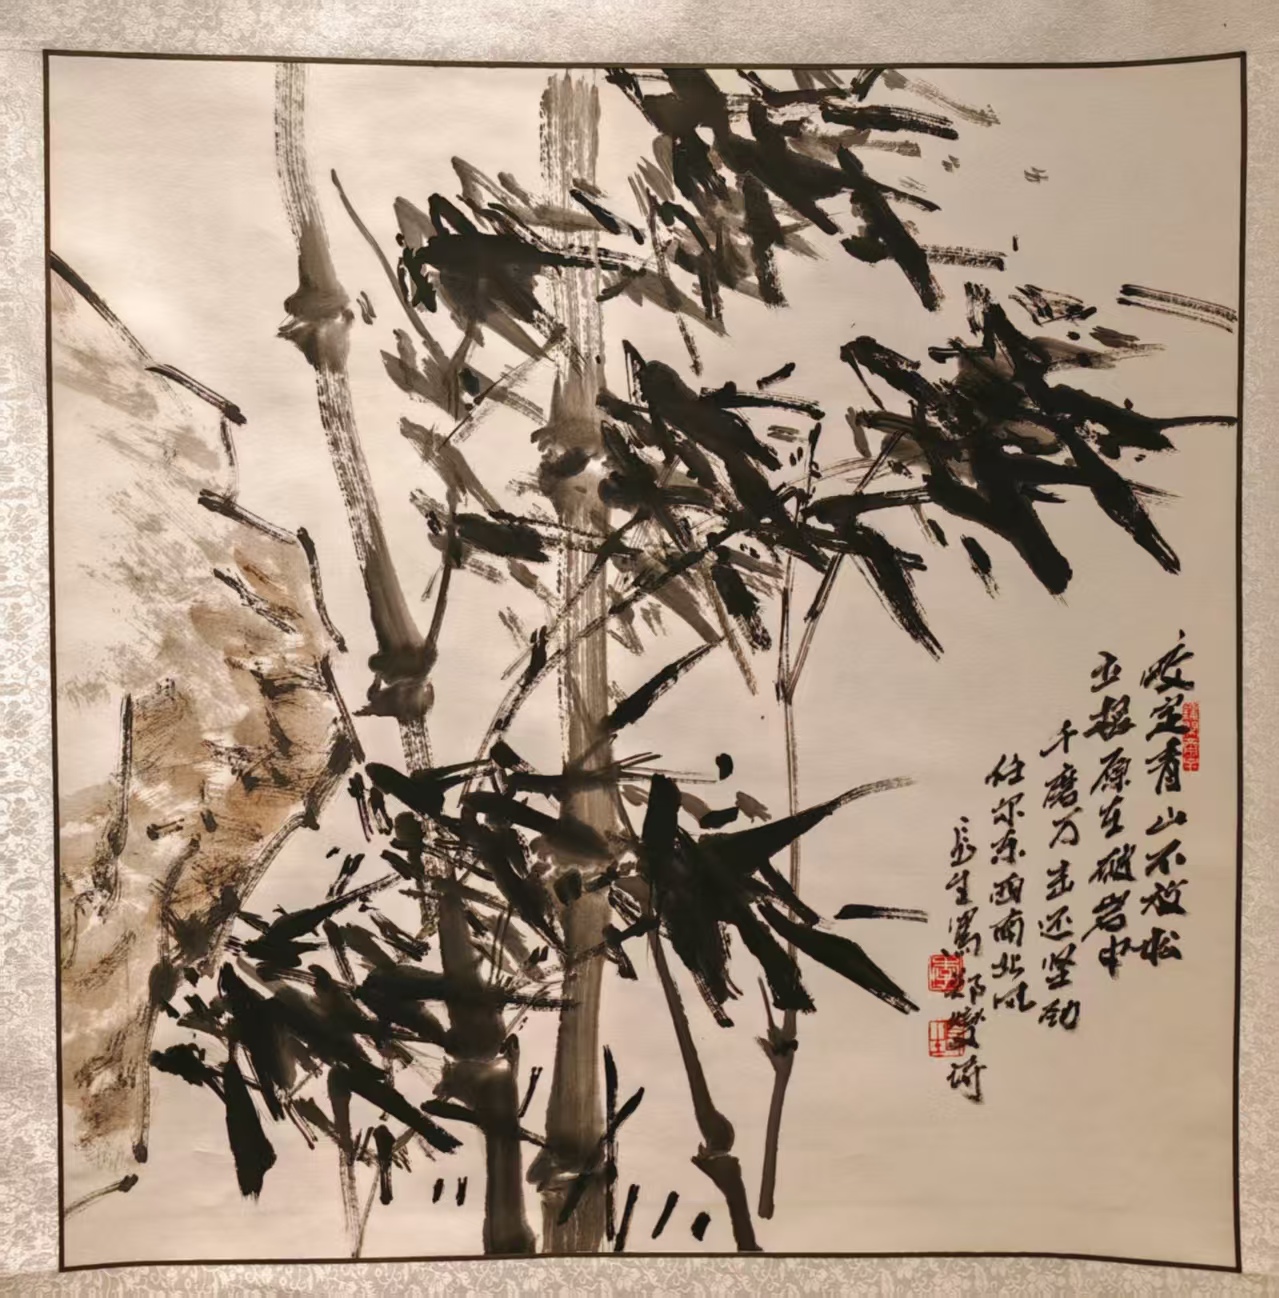 咬定青山不放松
立根原在破岩中
千磨万击还坚劲
任尔东西南北风
生写郑燮诗